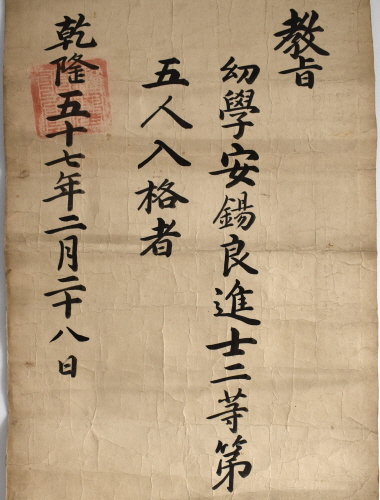 教旨
幼學安錫良進士二等第
五人入格者
乾隆五十七年二月二十八日